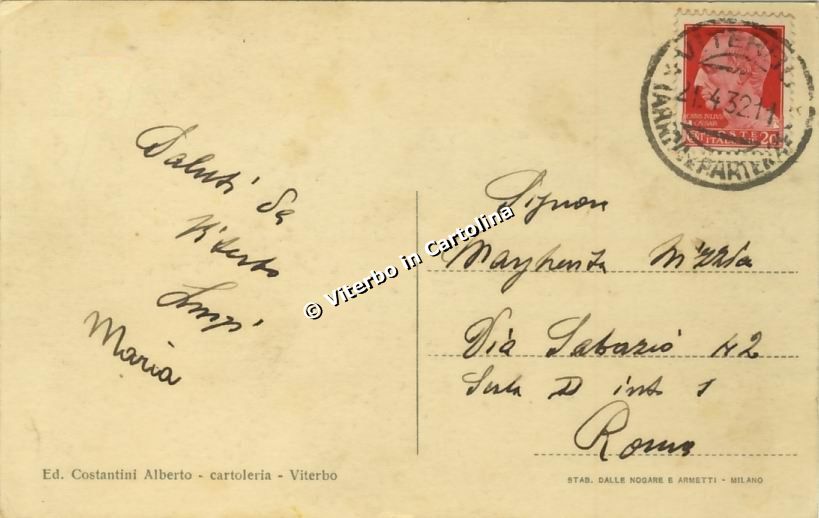 VITERBO
21.4.32.11
(ARRIVI E PARTENZE)
POSTE
ITALIANE
20
Saluti da
Viterbo
Luigi
Maria
© Viterbo in Cartolina
Signora
Margherita
Via Sabazio 42
Scala D int 1
Roma
Ed. Costantini Alberto - cartoleria - Viterbo
STAB. DALLE NOGARE E ARMETTI - MILANO